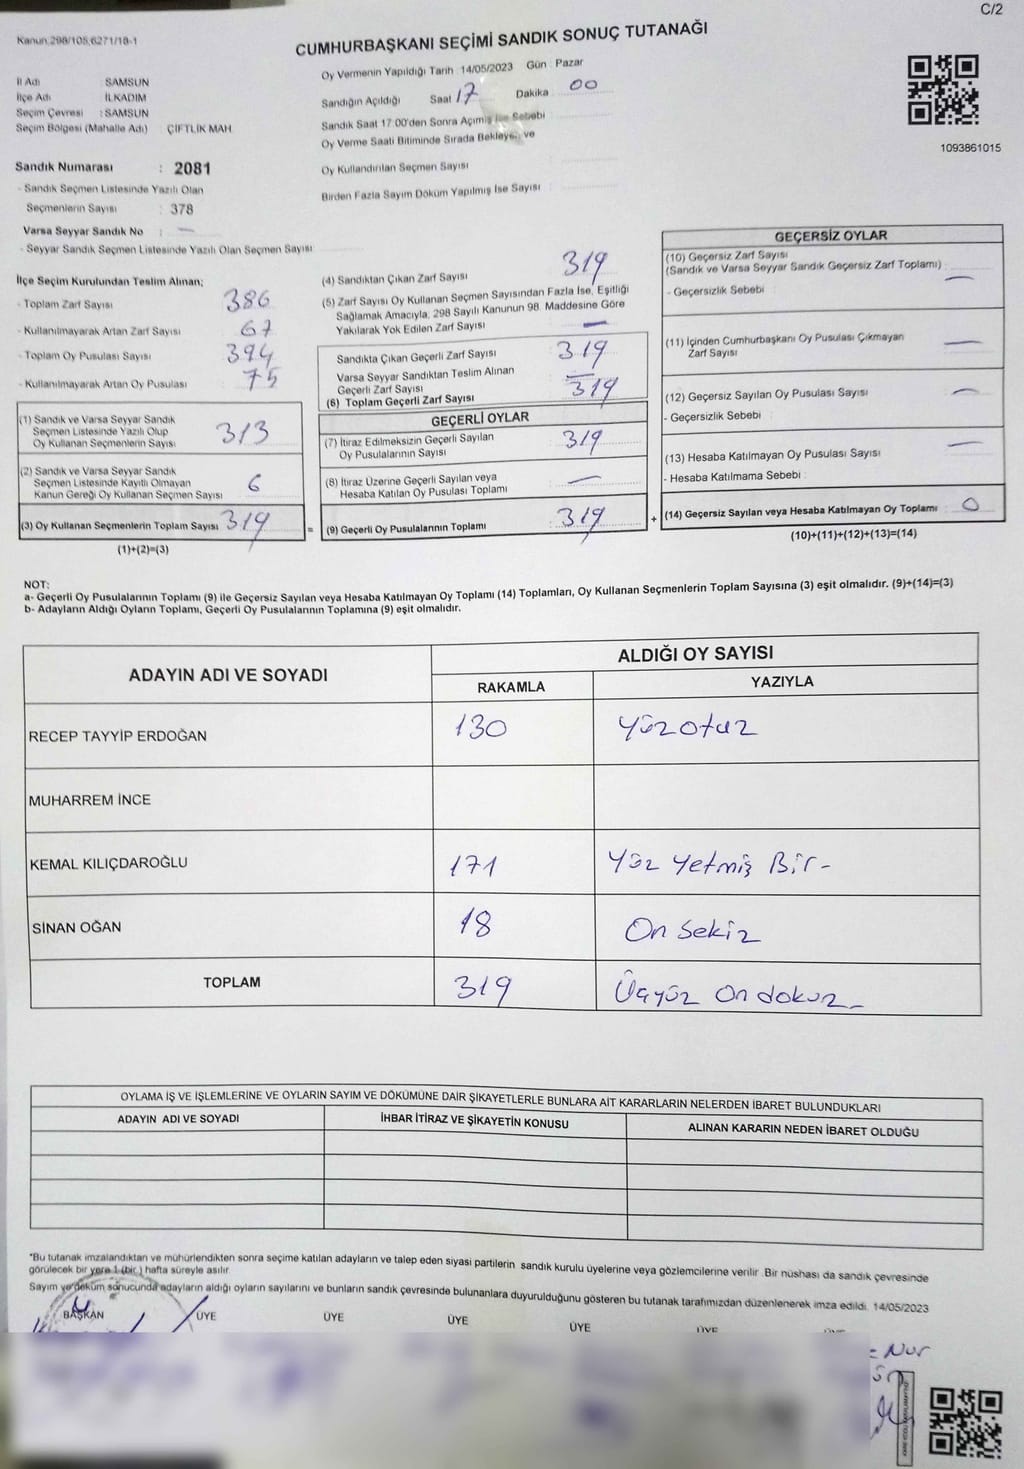 C/2
Kanun:298/105,6271/18-1
CUMHURBAŞKANI SEÇİMİ SANDIK SONUÇ TUTANAĞI
İl Adı : SAMSUN
İlçe Adı : İLKADIM
Seçim Çevresi : SAMSUN
Seçim Bölgesi (Mahalle Adı) ÇİFTLİK MAH.
Sandık Numarası : 2081
- Sandık Seçmen Listesinde Yazılı Olan
Seçmenlerin Sayısı : 378
Varsa Seyyar Sandık No : —
- Seyyar Sandık Seçmen Listesinde Yazılı Olan Seçmen Sayısı
Oy Vermenin Yapıldığı Tarih : 14/05/2023 Gün : Pazar
Sandığın Açıldığı Saat 17 Dakika 00
Sandık Saat 17:00'den Sonra Açımış İse Sebebi :
Oy Verme Saati Bitiminde Sırada Bekleyen ve
Oy Kullandırılan Seçmen Sayısı
Birden Fazla Sayım Döküm Yapılmış İse Sayısı :
1093861015
İlçe Seçim Kurulundan Teslim Alınan;
- Toplam Zarf Sayısı 386
- Kullanılmayarak Artan Zarf Sayısı 67
- Toplam Oy Pusulası Sayısı 394
- Kullanılmayarak Artan Oy Pusulası 75
(1) Sandık ve Varsa Seyyar Sandık
Seçmen Listesinde Yazılı Olup
Oy Kullanan Seçmenlerin Sayısı : 313
(2) Sandık ve Varsa Seyyar Sandık
Seçmen Listesinde Kayıtlı Olmayan
Kanun Gereği Oy Kullanan Seçmen Sayısı : 6
(3) Oy Kullanan Seçmenlerin Toplam Sayısı : 319
(1)+(2)=(3)
(4) Sandıktan Çıkan Zarf Sayısı 319
(5) Zarf Sayısı Oy Kullanan Seçmen Sayısından Fazla İse, Eşitliği
Sağlamak Amacıyla, 298 Sayılı Kanunun 98. Maddesine Göre
Yakılarak Yok Edilen Zarf Sayısı : —
Sandıkta Çıkan Geçerli Zarf Sayısı : 319
Varsa Seyyar Sandıktan Teslim Alınan
Geçerli Zarf Sayısı : —
(6) Toplam Geçerli Zarf Sayısı : 319
GEÇERLİ OYLAR
(7) İtiraz Edilmeksizin Geçerli Sayılan
Oy Pusulalarının Sayısı : 319
(8) İtiraz Üzerine Geçerli Sayılan veya
Hesaba Katılan Oy Pusulası Toplamı : —
= (9) Geçerli Oy Pusulalarının Toplamı : 319
GEÇERSİZ OYLAR
(10) Geçersiz Zarf Sayısı
(Sandık ve Varsa Seyyar Sandık Geçersiz Zarf Toplamı) : —
- Geçersizlik Sebebi :
(11) İçinden Cumhurbaşkanı Oy Pusulası Çıkmayan
Zarf Sayısı : —
(12) Geçersiz Sayılan Oy Pusulası Sayısı : —
- Geçersizlik Sebebi :
(13) Hesaba Katılmayan Oy Pusulası Sayısı : —
- Hesaba Katılmama Sebebi :
+ (14) Geçersiz Sayılan veya Hesaba Katılmayan Oy Toplamı : 0
(10)+(11)+(12)+(13)=(14)
NOT:
a- Geçerli Oy Pusulalarının Toplamı (9) ile Geçersiz Sayılan veya Hesaba Katılmayan Oy Toplamı (14) Toplamları, Oy Kullanan Seçmenlerin Toplam Sayısına (3) eşit olmalıdır. (9)+(14)=(3)
b- Adayların Aldığı Oyların Toplamı, Geçerli Oy Pusulalarının Toplamına (9) eşit olmalıdır.
ADAYIN ADI VE SOYADI ALDIĞI OY SAYISI
RAKAMLA YAZIYLA
RECEP TAYYİP ERDOĞAN 130 Yüz otuz
MUHARREM İNCE
KEMAL KILIÇDAROĞLU 171 Yüz Yetmiş Bir -
SİNAN OĞAN 18 On Sekiz
TOPLAM 319 Üçyüz On dokuz -
OYLAMA İŞ VE İŞLEMLERİNE VE OYLARIN SAYIM VE DÖKÜMÜNE DAİR ŞİKAYETLERLE BUNLARA AİT KARARLARIN NELERDEN İBARET BULUNDUKLARI
ADAYIN ADI VE SOYADI İHBAR İTİRAZ VE ŞİKAYETİN KONUSU ALINAN KARARIN NEDEN İBARET OLDUĞU
*Bu tutanak imzalandıktan ve mühürlendikten sonra seçime katılan adayların ve talep eden siyasi partilerin sandık kurulu üyelerine veya gözlemcilerine verilir. Bir nüshası da sandık çevresinde
görülecek bir yere 1 (bir ) hafta süreyle asılır.
Sayım ve döküm sonucunda adayların aldığı oyların sayılarını ve bunların sandık çevresinde bulunanlara duyurulduğunu gösteren bu tutanak tarafımızdan düzenlenerek imza edildi. 14/05/2023
BAŞKAN ÜYE ÜYE ÜYE ÜYE
Nur